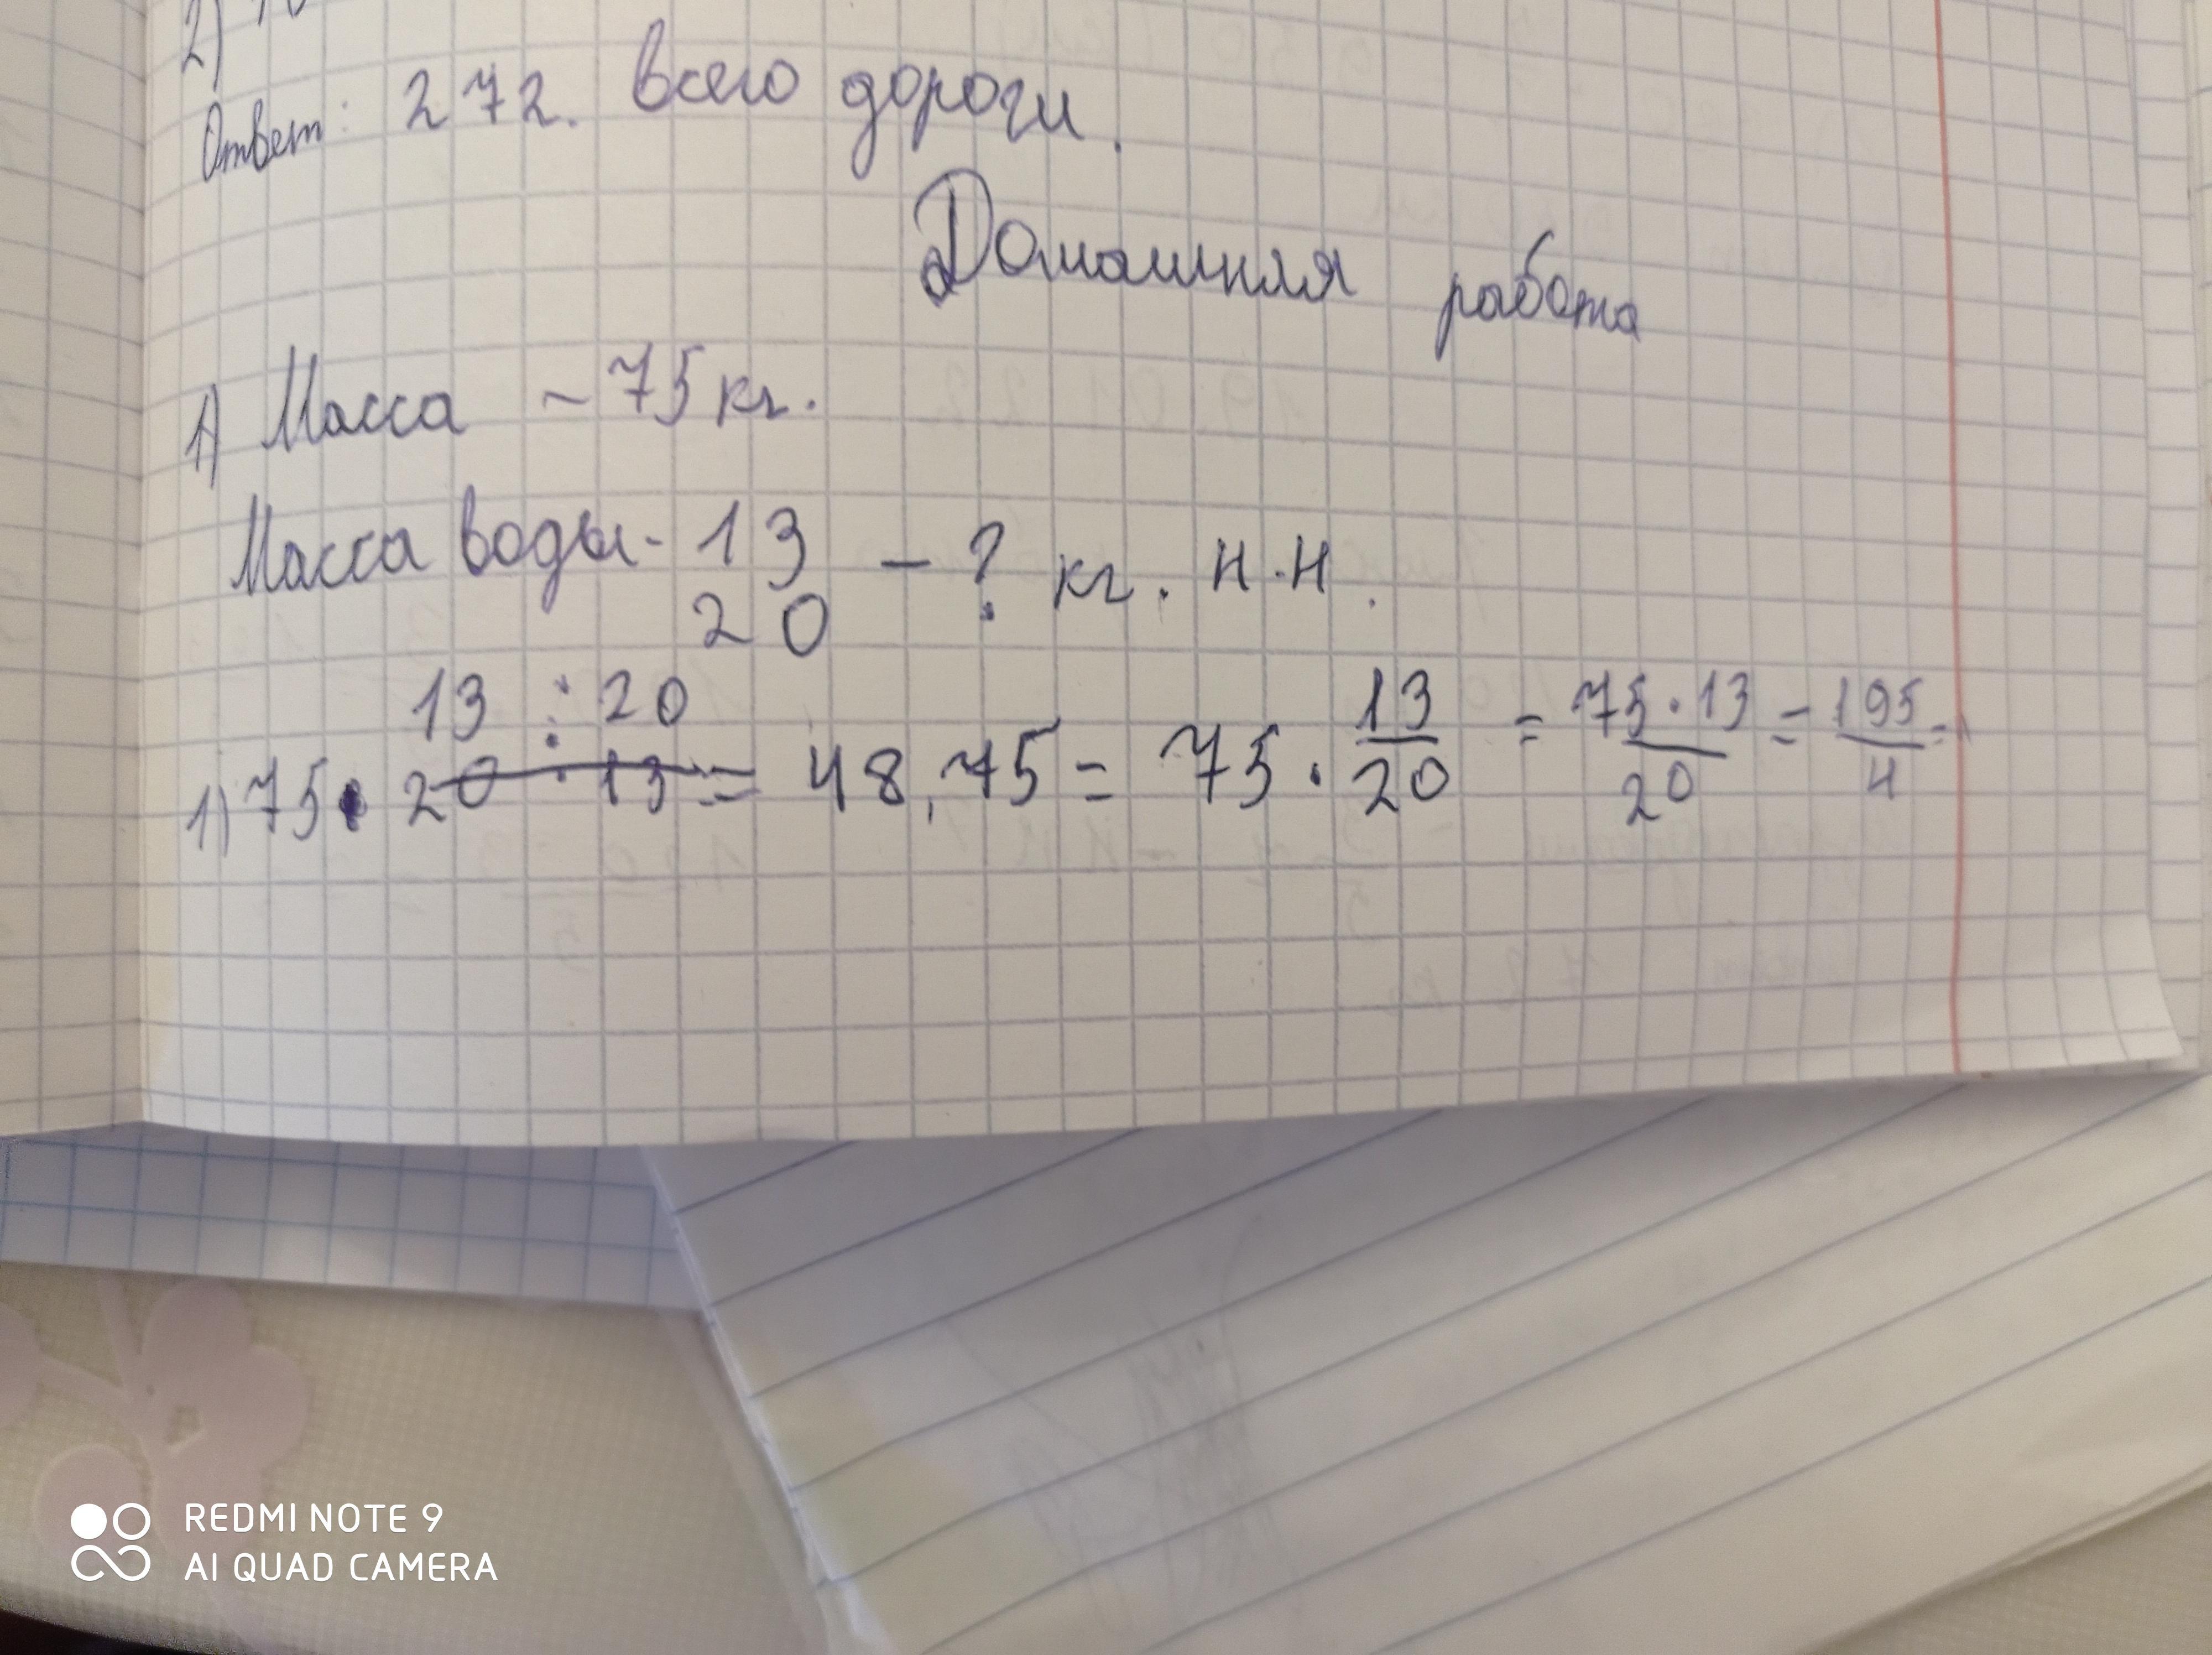 2)
Ответ: 272. Всего дороги.
Домашняя работа
1) Масса - 75 кг.
Масса воды - 13 - ? кг. н.н.
20
13 : 20
1) 75 • 20 : 13 = 48,75 = 75 · 13/20 = 75·13/20 = 195/4 =
REDMI NOTE 9
AI QUAD CAMERA